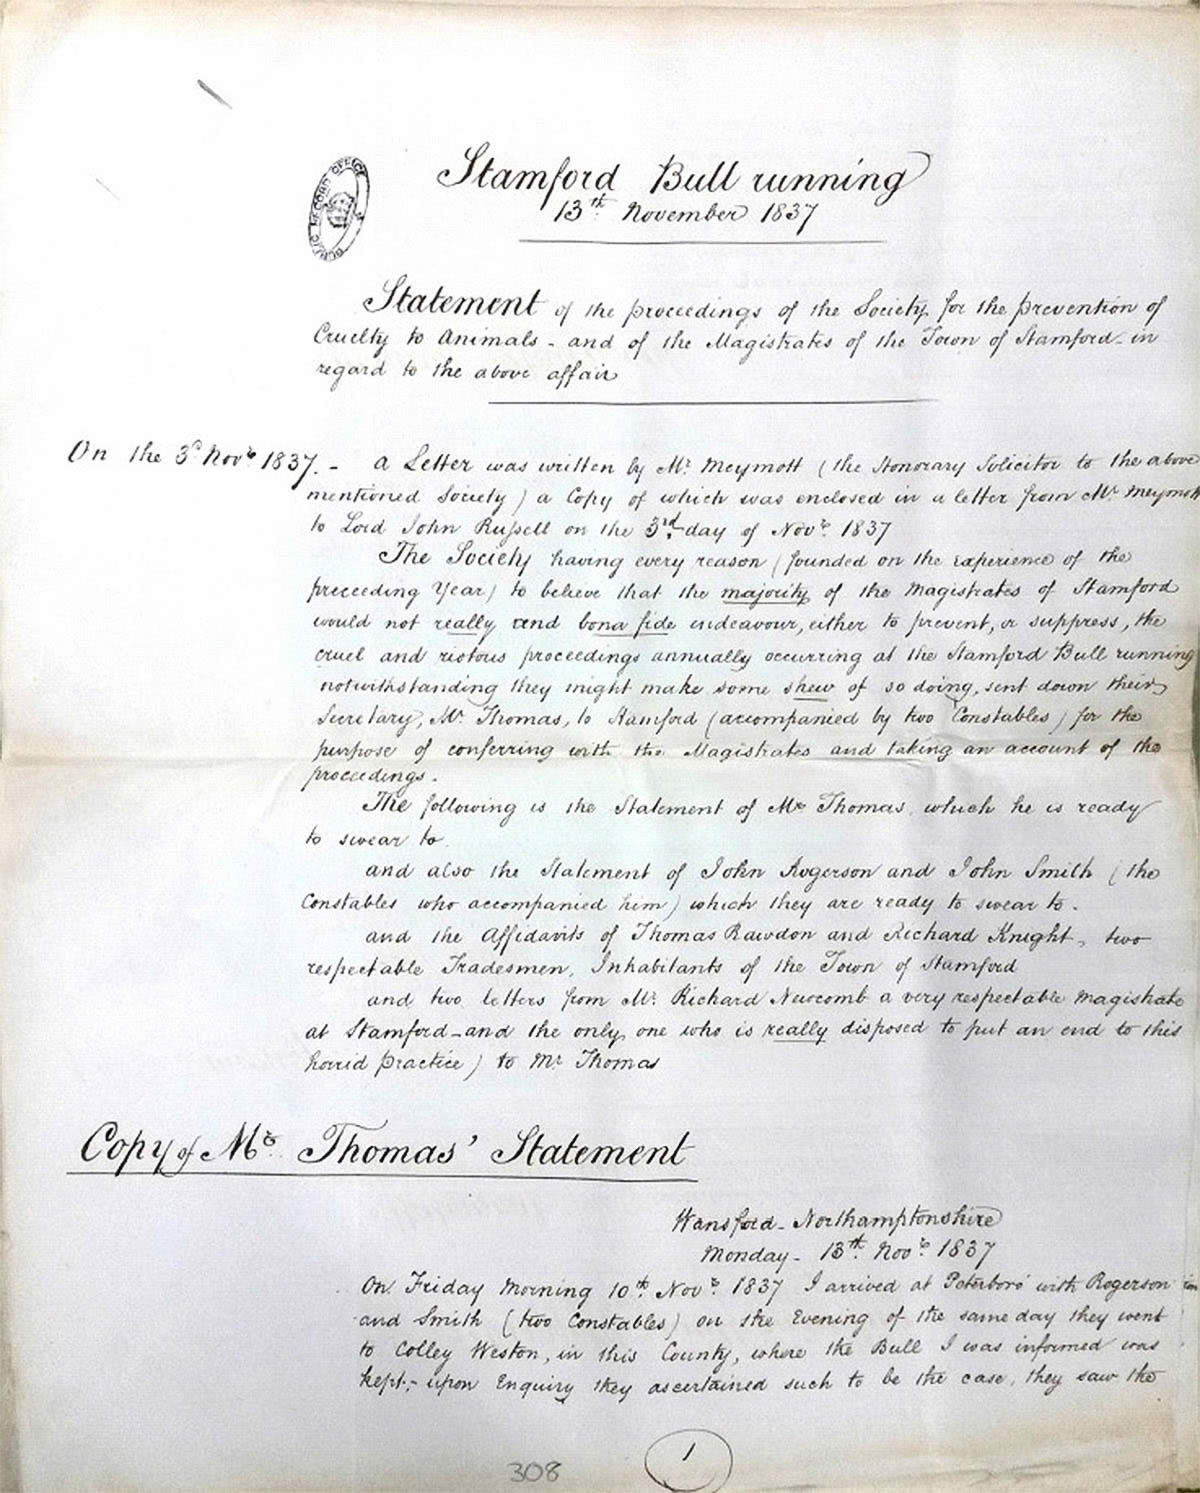 PUBLIC RECORD OFFICE
Stamford Bull running
13th November 1837
Statement of the proceedings of the Society for the prevention of
Cruelty to Animals - and of the Magistrates of the Town of Stamford - in
regard to the above affair
On the 3d Novr 1837. - a Letter was written by Mr Meymott (the Honorary Solicitor to the above
mentioned Society) a Copy of which was enclosed in a letter from Mr Meymott
to Lord John Russell on the 3rd day of Novr 1837
The Society having every reason (founded on the experience of the
preceeding Year) to believe that the majority of the Magistrates of Stamford
would not really and bona fide endeavour, either to prevent, or suppress, the
cruel and riotous proceedings annually occurring at the Stamford Bull running
notwithstanding they might make some shew of so doing, sent down their
Secretary, Mr Thomas, to Stamford (accompanied by two Constables) for the
purpose of conferring with the Magistrates and taking an account of the
proceedings.
The following is the Statement of Mr Thomas, which he is ready
to swear to.
and also the Statement of John Rogerson and John Smith (the
Constables who accompanied him) which they are ready to swear to.
and the Affidavits of Thomas Rawdon and Richard Knight, two
respectable Tradesmen, Inhabitants of the Town of Stamford
and two letters from Mr Richard Newcomb a very respectable Magistrate
at Stamford - and the only one who is really disposed to put an end to this
horrid practice) to Mr Thomas
Copy of Mr Thomas' Statement
Wansford - Northamptonshire
Monday - 13th Novr 1837
On Friday Morning 10th Novr 1837 I arrived at Peterboro' with Rogerson
and Smith (two Constables) on the Evening of the same day they went
to Colley Weston, in this County, where the Bull I was informed was
kept; - upon Enquiry they ascertained such to be the case, they saw the
308
1